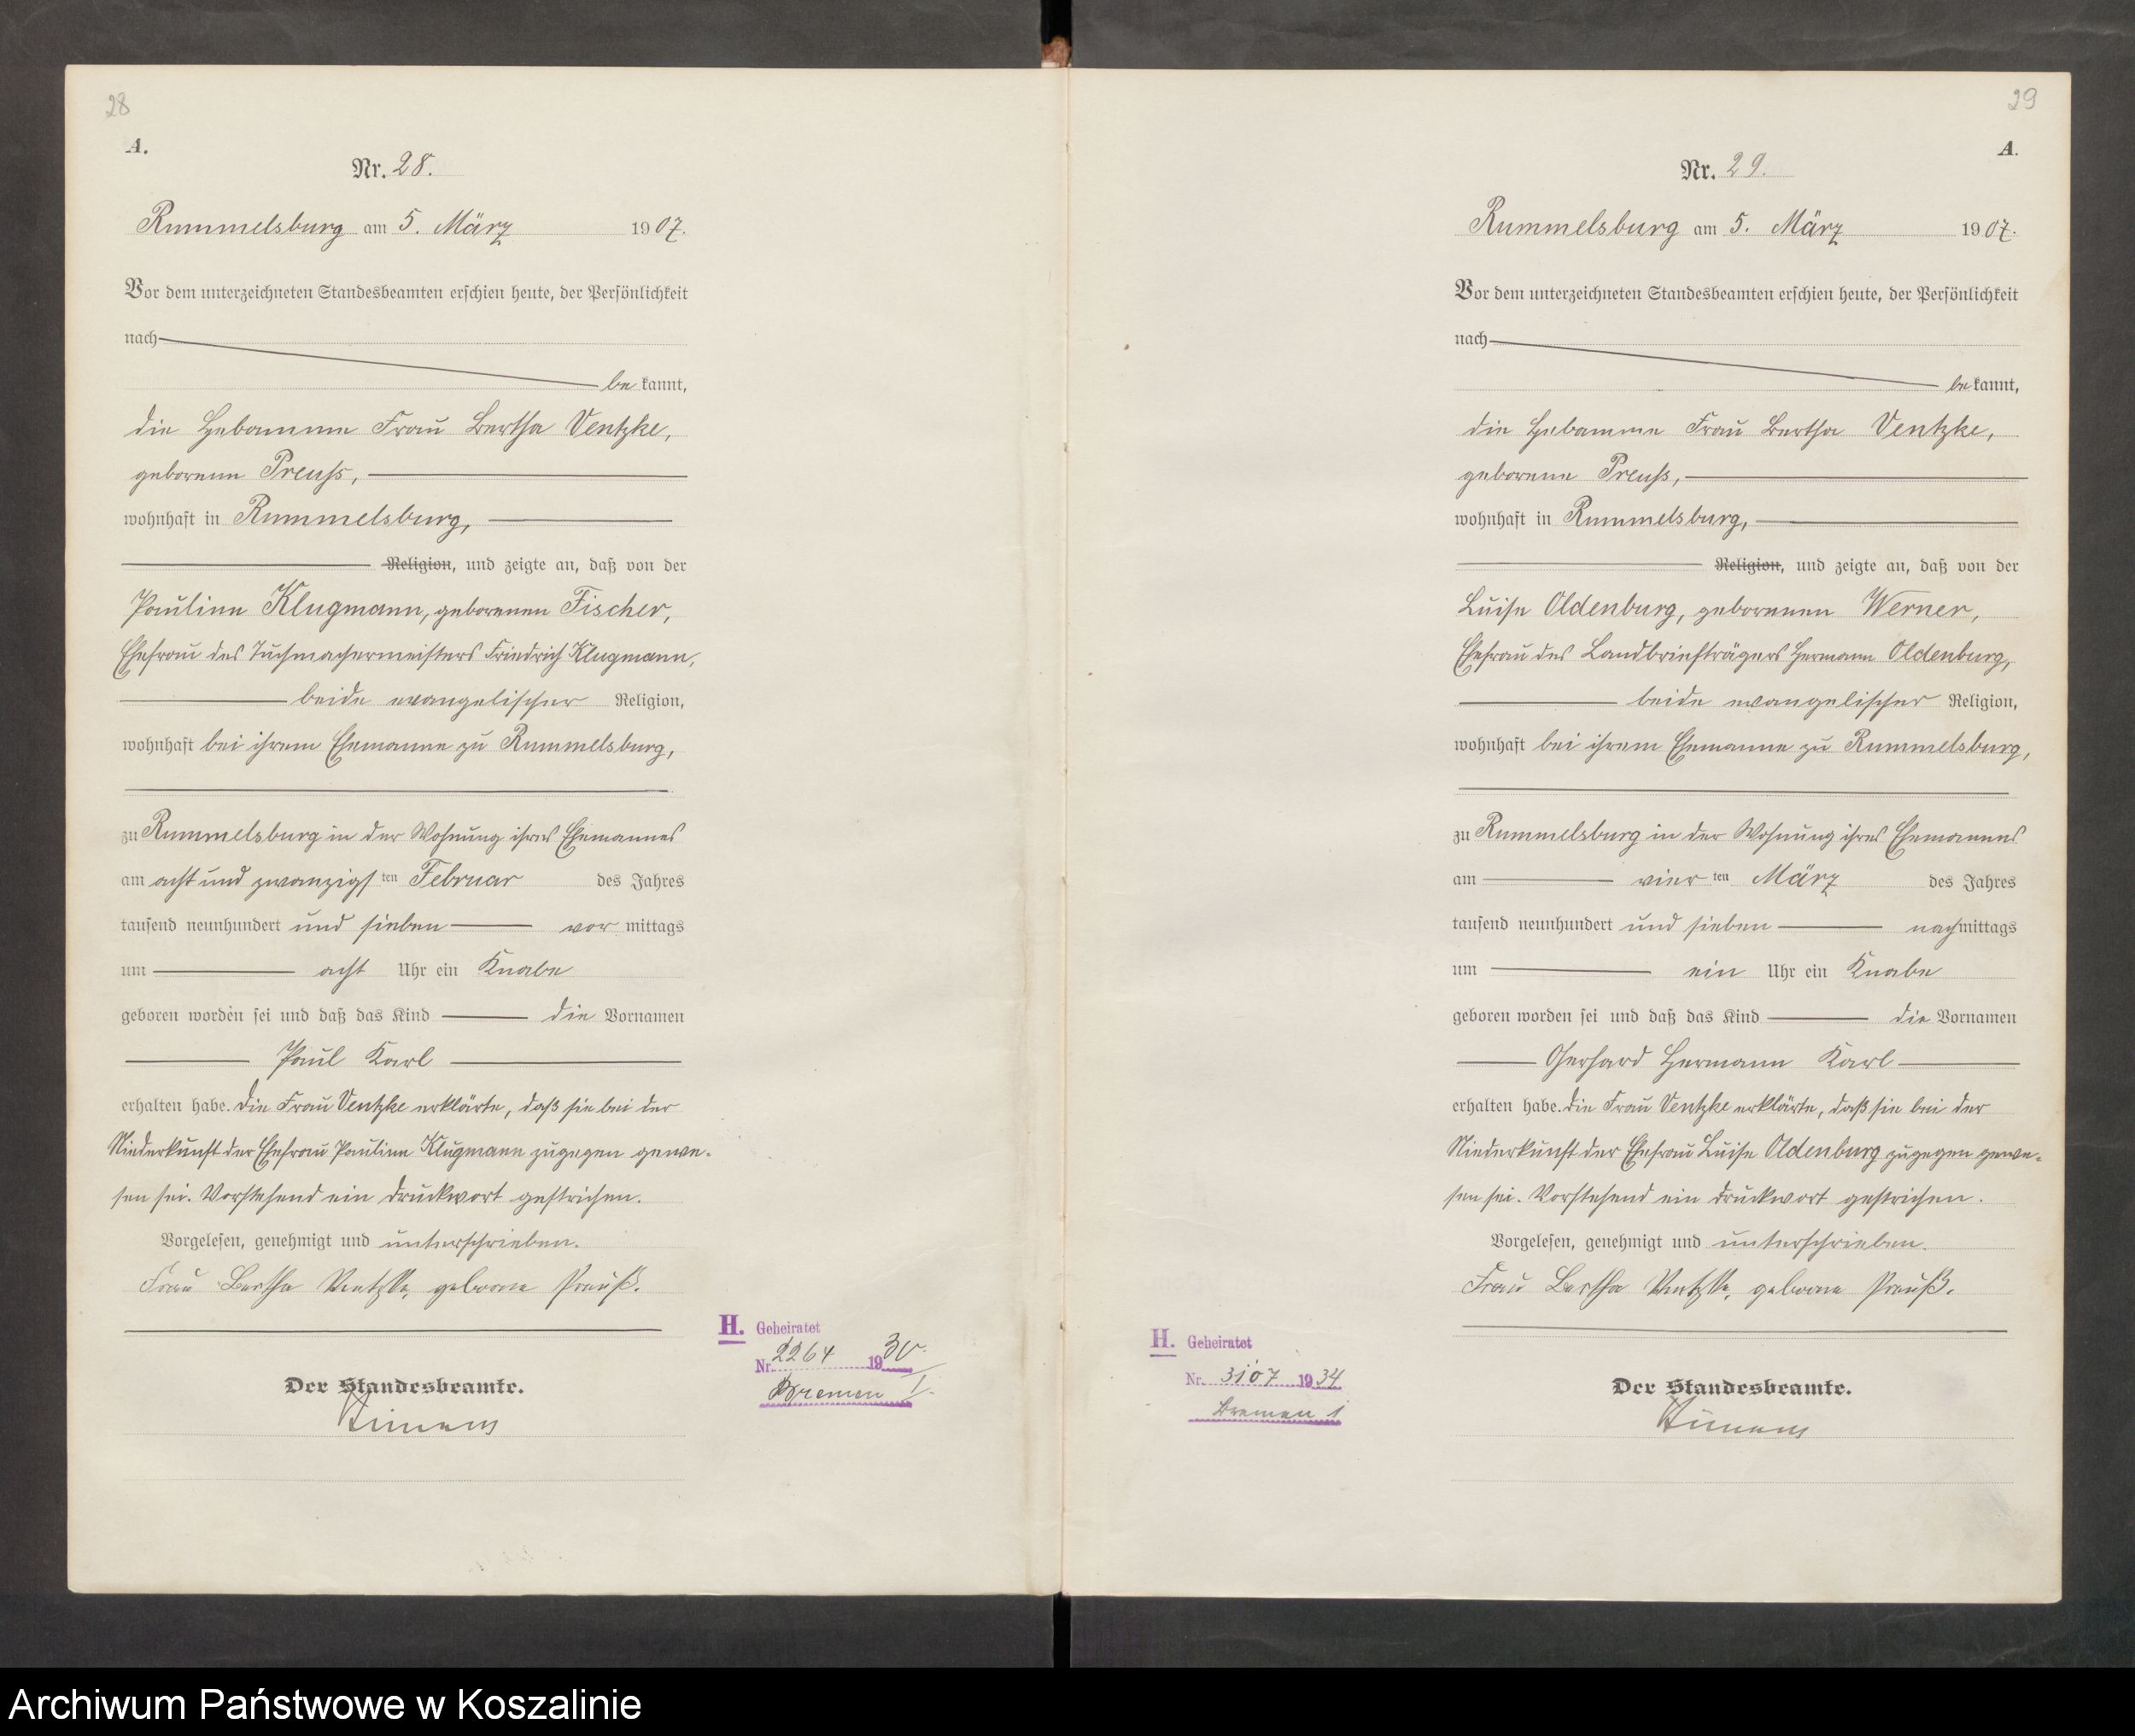 28
A.
Nr. 28.
Rummelsburg am 5. März 1907.
Vor dem unterzeichneten Standesbeamten erschien heute, der Persönlichkeit
nach
be kannt,
die Hebamme Frau Bertha Ventzke,
geborene Preuss,
wohnhaft in Rummelsburg,
Religion, und zeigte an, daß von der
Pauline Klugmann, geborenen Fischer,
Ehefrau des Tuchmachermeisters Friedrich Klugmann,
beide evangelischer Religion,
wohnhaft bei ihrem Ehemanne zu Rummelsburg,
zu Rummelsburg in der Wohnung ihres Ehemannes
am acht und zwanzigsten Februar des Jahres
tausend neunhundert und sieben vor mittags
um acht Uhr ein Knabe
geboren worden sei und daß das Kind die Vornamen
Paul Karl
erhalten habe. Die Frau Ventzke erklärte, daß sie bei der
Niederkunft der Ehefrau Pauline Klugmann zugegen gewe-
sen sei. Vorstehend ein Druckwort gestrichen.
Vorgelesen, genehmigt und unterschrieben.
Frau Bertha Ventzke, geborne Preuß.
Der Standesbeamte.
H. Geheiratet
Nr. 2264 1930
Bremen I.
29
A.
Nr. 29.
Rummelsburg am 5. März 1907.
Vor dem unterzeichneten Standesbeamten erschien heute, der Persönlichkeit
nach
be kannt,
die Hebamme Frau Bertha Ventzke,
geborene Preuss,
wohnhaft in Rummelsburg,
Religion, und zeigte an, daß von der
Luise Oldenburg, geborenen Werner,
Ehefrau des Landbriefträgers Hermann Oldenburg,
beide evangelischer Religion,
wohnhaft bei ihrem Ehemanne zu Rummelsburg,
zu Rummelsburg in der Wohnung ihres Ehemannes
am vierten März des Jahres
tausend neunhundert und sieben nachmittags
um ein Uhr ein Knabe
geboren worden sei und daß das Kind die Vornamen
Gerhard Hermann Karl
erhalten habe. Die Frau Ventzke erklärte, daß sie bei der
Niederkunft der Ehefrau Luise Oldenburg zugegen gewe-
sen sei. Vorstehend ein Druckwort gestrichen.
Vorgelesen, genehmigt und unterschrieben.
Frau Bertha Ventzke, geborne Preuß.
Der Standesbeamte.
H. Geheiratet
Nr. 3107 1934
Bremen 1
Archiwum Państwowe w Koszalinie